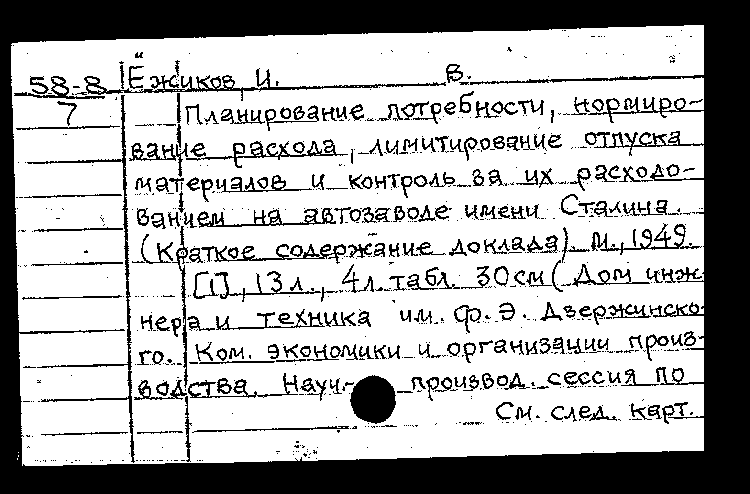 58-8 Ёжиков, И. В.
7 Планирование потребности, нормиро-
вание расхода, лимитирование отпуска
материалов и контроль за их расходо-
ванием на автозаводе имени Сталина.
(Краткое содержание доклада). М., 1949.
[1], 13 л., 4 л. табл. 30 см (Дом инже-
нера и техника им. Ф. Э. Дзержинско-
го. Ком. экономики и организации произ-
водства. Науч.- производ. сессия по
См. след. карт.